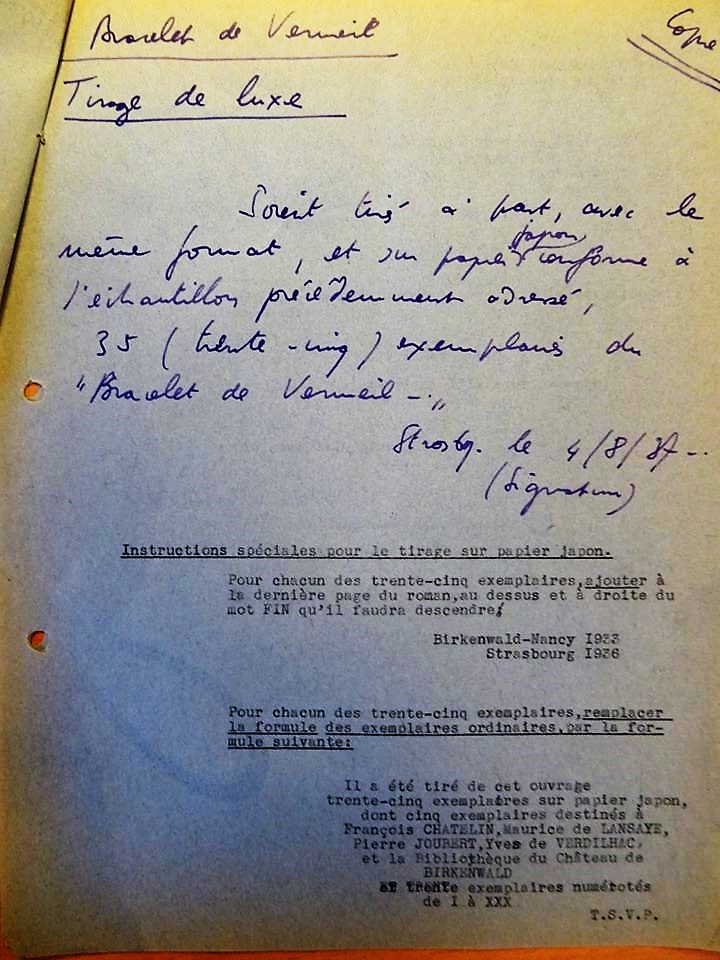 Bracelet de Vermeil
Copie
Tirage de luxe
Soient tirés à part, avec le
même format, et sur papier japon conforme à
l'échantillon précédemment adressé,
35 (trente-cinq) exemplaires du
"Bracelet de Vermeil -."
Strasbg. le 4/8/37-..
(Signature)
Instructions spéciales pour le tirage sur papier japon.
Pour chacun des trente-cinq exemplaires,ajouter à
la dernière page du roman,au dessus et à droite du
mot FIN qu'il faudra descendre:
Birkenwald-Nancy I933
Strasbourg I936
Pour chacun des trente-cinq exemplaires,remplacer
la formule des exemplaires ordinaires,par la for-
mule suivante:
Il a été tiré de cet ouvrage
trente-cinq exemplaires sur papier japon,
dont cinq exemplaires destinés à
François CHATELIN,Maurice de LANSAYE,
Pierre JOUBERT,Yves de VERDILHAC,
et la Bibliothèque du Château de
BIRKENWALD
ET trente exemplaires numérotés
de I à XXX
T.S.V.P.